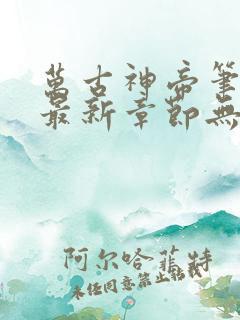 萬古神帝筆
最新章節無
阿尔哈菲特
未经同意禁止转载